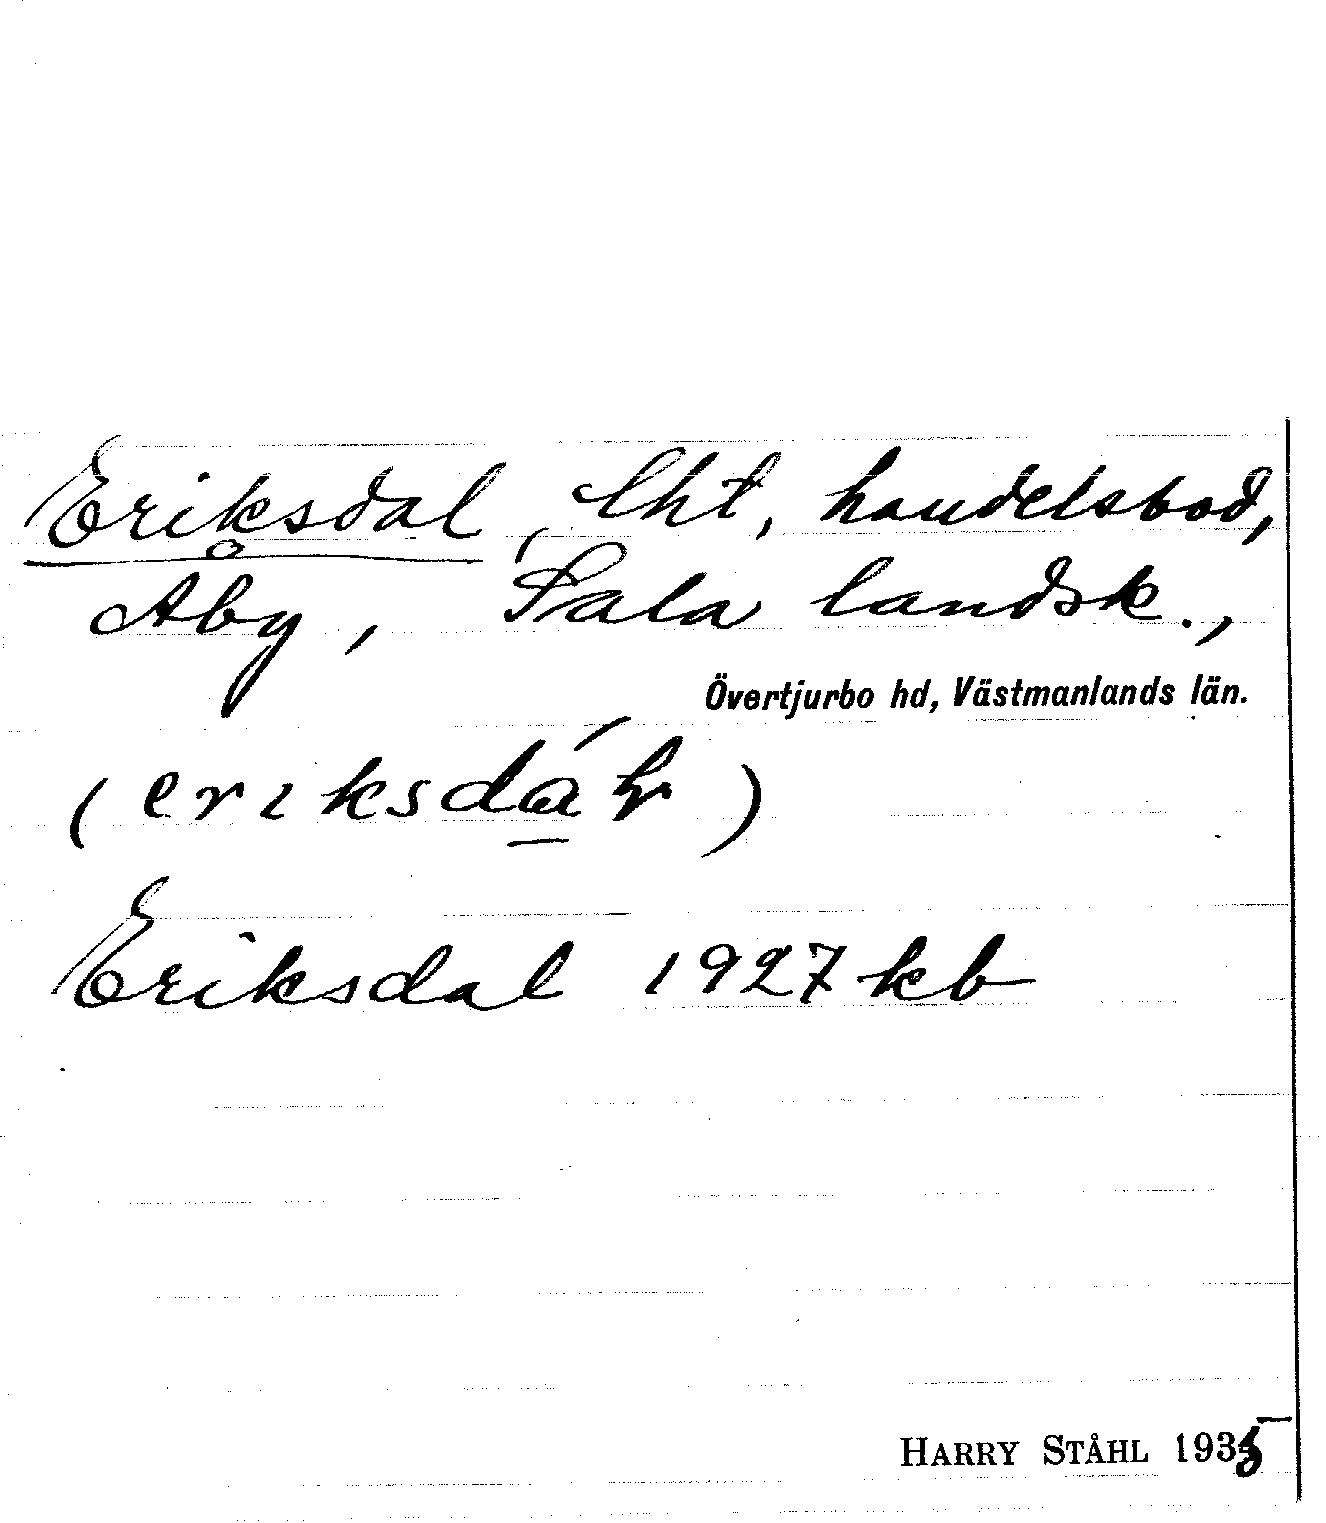 Eriksdal, lht, handelsbod,
Åby, Sala landsk.,
Övertjurbo hd, Västmanlands län.
(eriksdá̱ł)
Eriksdal 1927 kb
HARRY STÅHL 1935